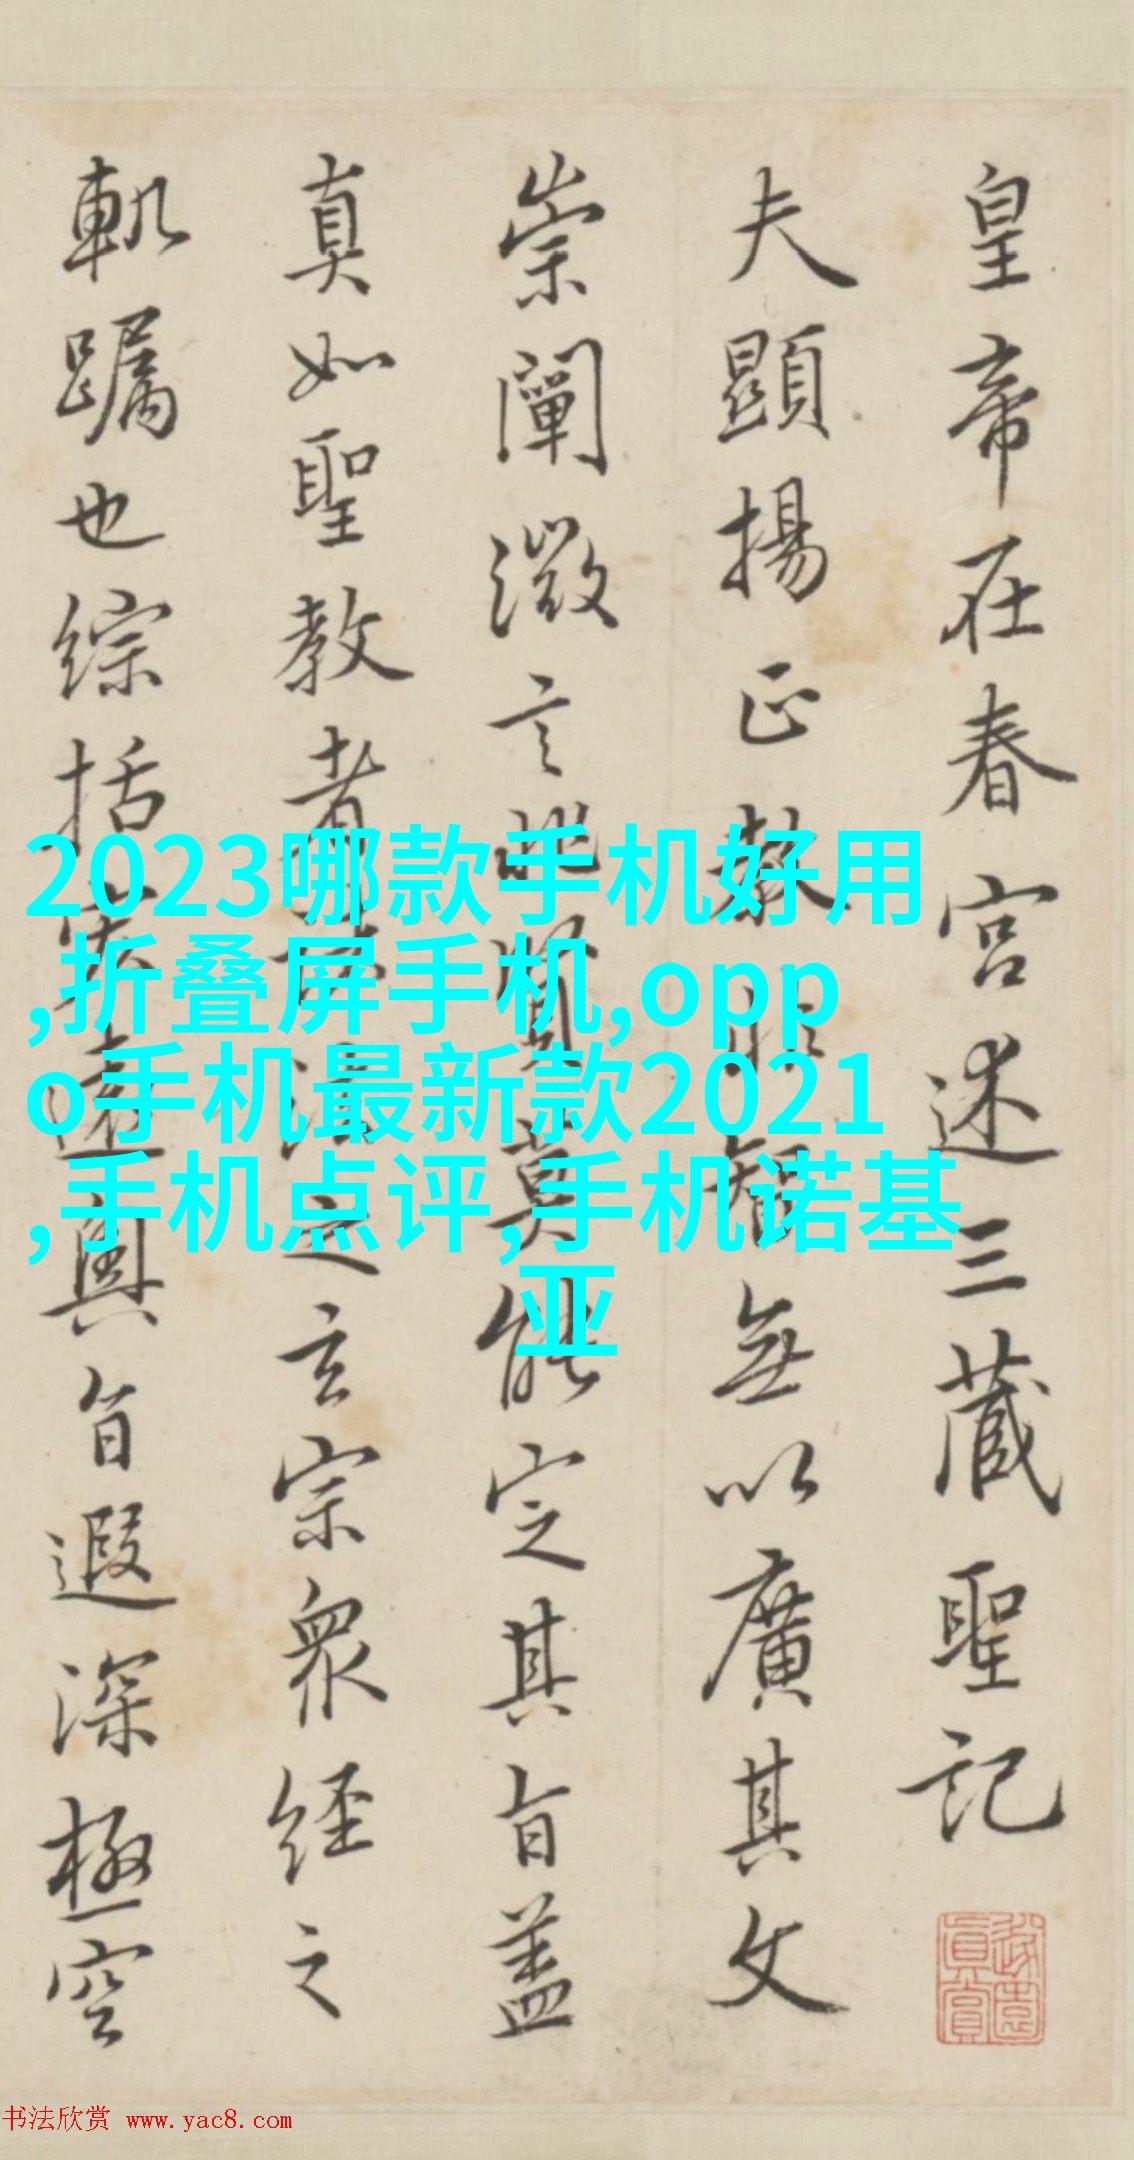 皇帝在春宮述三藏聖記
夫顯揚正教非智無以廣其文
崇闡微言非賢莫能定其旨蓋
真如聖教者諸法之玄宗眾經之
軌躅也綜括宏遠奧旨遐深極空
2023哪款手机好用
,折叠屏手机,opp
o手机最新款2021
,手机点评,手机诺基
亚
书法欣赏 www.yac8.com